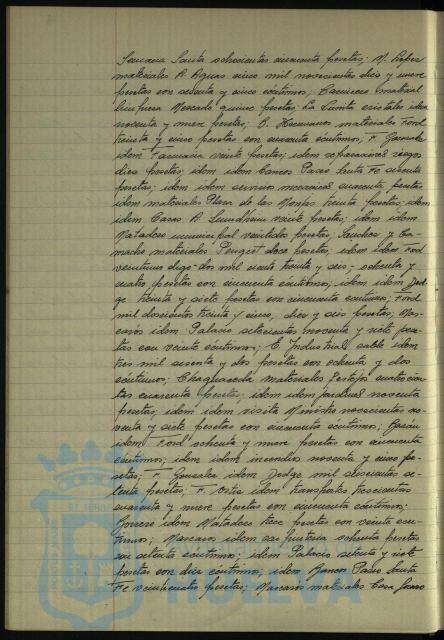 Semana Santa ochocientas cincuenta pesetas; M. López
materiales A. Aguas cinco mil novecientas diez y nueve
pesetas con sesenta y cinco céntimos; Carnicero material
limpieza Mercado quince pesetas; La Cinita cristales idem
noventa y nueve pesetas; B. Hermanos materiales Ford
treinta y cinco pesetas con cincuenta céntimos; F. González
idem Farmacia veinte pesetas; idem reparaciones riegos
diez pesetas; idem idem bancos Paseo Santa Fe sesenta
pesetas; idem idem servicio mecánico cuarenta pesetas
idem materiales Plaza de las Monjas treinta pesetas; idem
idem Casas A. veinte pesetas; idem idem
Matadero veintidos pesetas; Sanchez y Ca-
macho materiales Peugeot doce pesetas; idem idem Ford
veintiuno digo dos mil ciento treinta y seis, ochenta y
cuatro pesetas con cincuenta céntimos; idem idem Dod-
ge treinta y siete pesetas con cincuenta céntimos; Ford
mil doscientos treinta y cinco, diez y seis pesetas; Mas-
carós idem Palacio setecientas noventa y siete pese-
tas con veinte céntimos; E. Industrial cable idem
tres mil sesenta y dos pesetas con ochenta y dos
céntimos; Chaguaceda materiales Festejos cuatrocien-
tas cuarenta pesetas; idem idem jardines noventa
pesetas; idem idem visita Ministro novecientas no-
venta y siete pesetas con cincuenta céntimos;
idem Ford ochenta y nueve pesetas con cincuenta
céntimos; idem idem incendios noventa y cinco pe-
setas; F. González idem Dodge mil seiscientas se-
tenta pesetas; F. Ortiz idem transportes trescientas
cuarenta y nueve pesetas con cincuenta céntimos;
idem Matadero trece pesetas con veinte cen-
timos; Mascarós idem carpintería ochenta pesetas
con setenta céntimos; idem Palacio setenta y siete
pesetas con diez céntimos; idem Bancos Paseo Santa
Fe veinticuatro pesetas; Mascarós materiales Casa
HUELVA